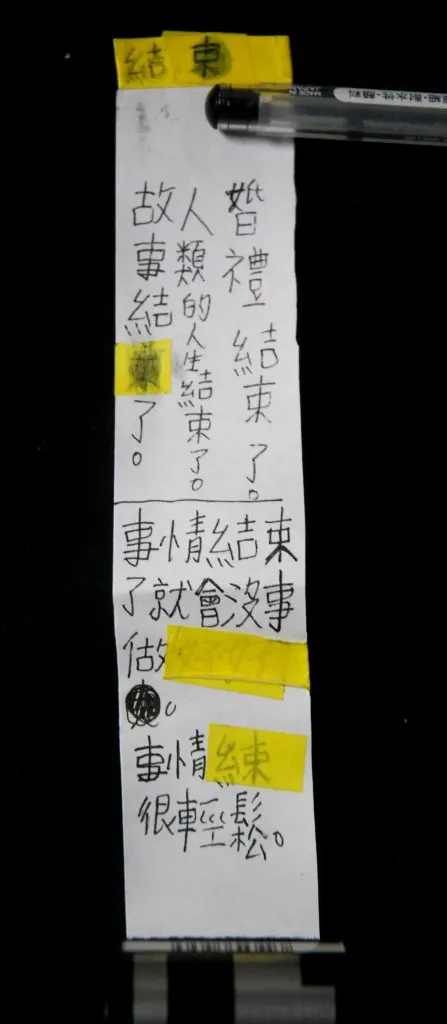 結束
婚禮結束了。
人類的人生結束了。
故事結了。
事情結束
了就會沒事
做
。
事情練
很輕鬆。